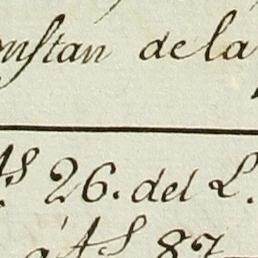 onstan de la
A.s 26. del L.
á A.s 87